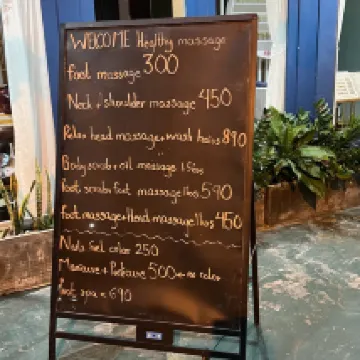 WELCOME Healthy massage
foot massage 300
Neck + shoulder massage 450
Relax head massage + wash hairs 890
Body scrub + oil massage
foot scrub + foot massage 1hs 590
foot massage + Hand massage 1hs 450
Nails Gel color 250
500 no color
foot spa 690